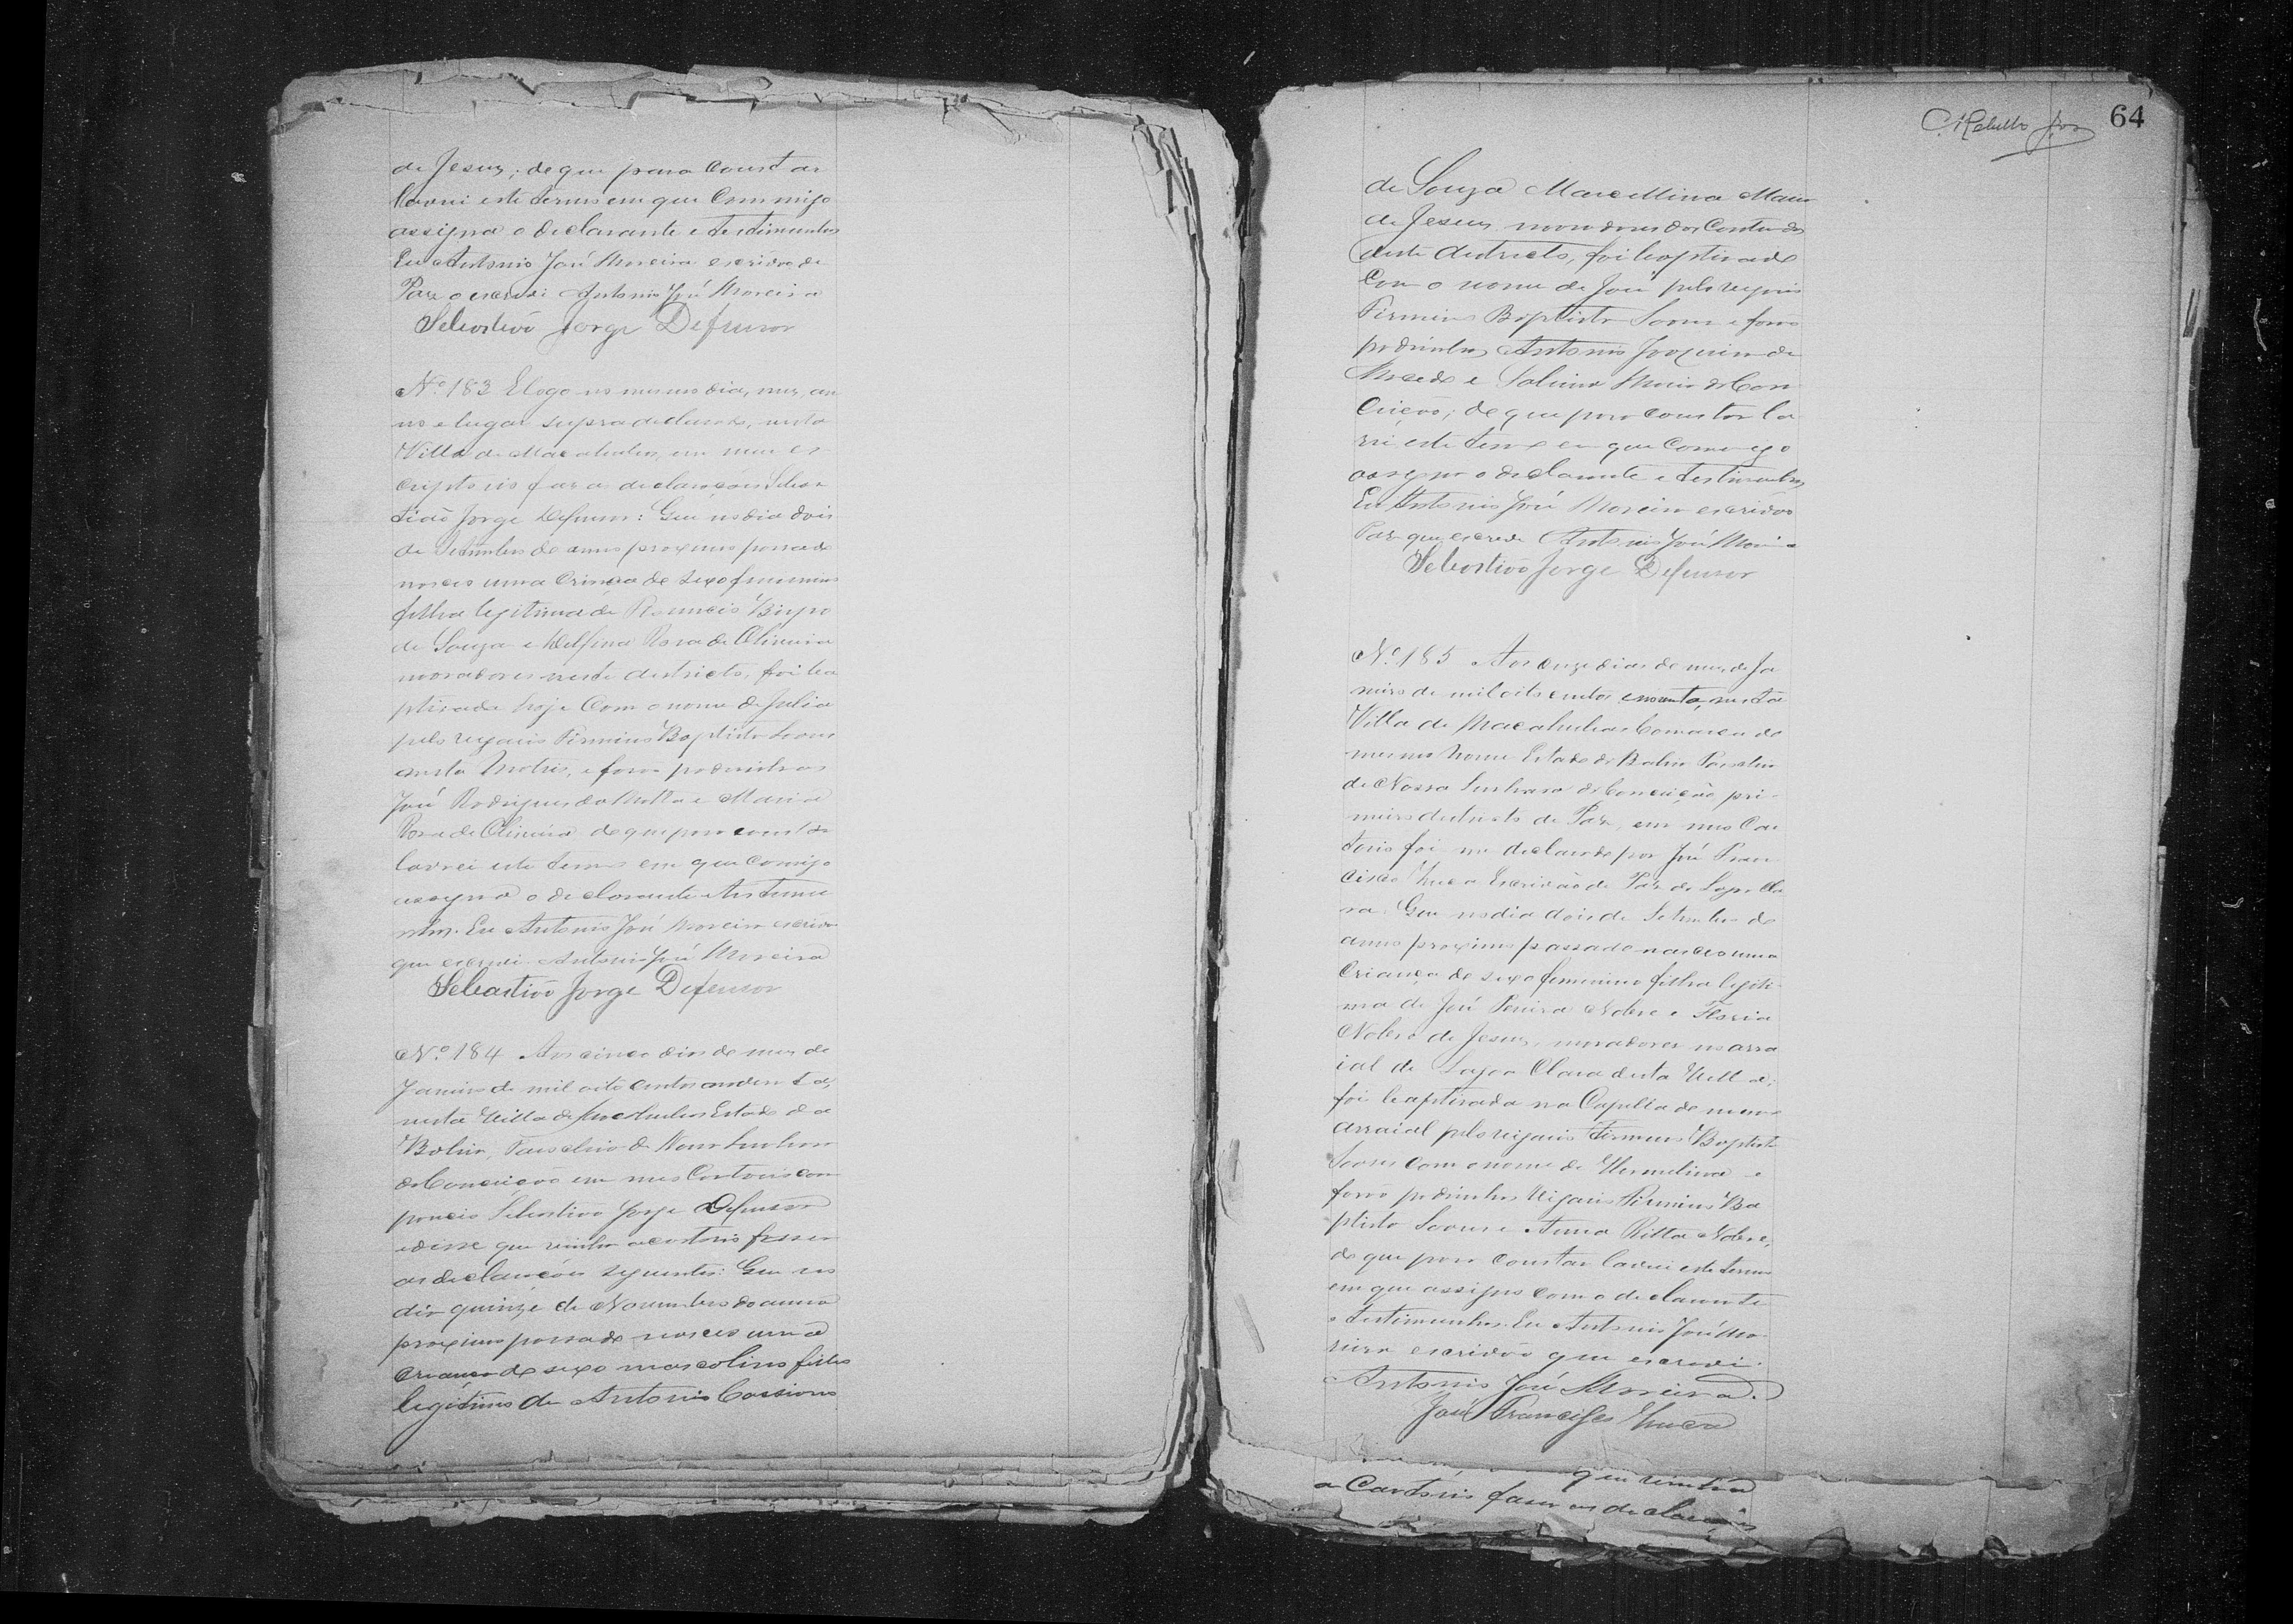 de Jesus; de que para constar
lavrei este termo em que commigo
assigna o declarante e testimunhas
Eu Antonio José Moreira escrivão de
Paz o escrevi Antonio José Moreira
Sebastião Jorge Defensor
Nº 183 E logo no mesmo dia, mez, an
no e lugar supra declarado, nesta
Villa de Macahubas, em meu es-
criptorio faz as declarações Sebas
tião Jorge Defensor: Que no dia dois
de Setembro do anno proximo passado
nasceo uma criança de sexo feminino
filha legitima de Bispo
de Souza e Delfina Rosa de Oliveira
moradores neste districto, foi ba
ptisada hoje com o nome de Julia
pelo vigario Firmino Baptista Soares
nesta Matris, e foram padrinhos
José Rodrigues da Motta e Maria
Rosa de Oliveira de que para constar
lavrei este termo em que comigo
assigna o declarante e testimu
nhas. Eu Antonio José Moreira escrivão
que escrevi Antonio José Moreira
Sebastião Jorge Defensor
Nº 184 Aos cinco dias do mez de
Janeiro de mil oito centos e noventa,
nesta Villa de Macahubas Estado da
Bahia, Parochia de Nossa Senhora
da Conceição em meu Cartorio com
pareceo Sebastião Jorge Defensor
e disse que vinha a cartorio faser
as declarações seguintes: Que no
dia quinze de Novembro do anno
proximo passado nasceo uma
criança de sexo mascolino filho
legitimo de Antonio Cassiano
64
de Souza Marcellina Maria
de Jesus, moradores
deste districto, foi baptisado
com o nome de José pelo vigario
Firmino Baptista Soares e foram
padrinhos Antonio Joaquim de
Macedo e Salina Maria da Con
ceição; de que para constar la
vrei este termo em que comigo
assigna o declarante e testimunhas
Eu Antonio José Moreira escrivão
Paz que escrevi Antonio José Moreira
Sebastião Jorge Defensor
Nº 185 Aos onze dias do mez de Ja
neiro de mil oito centos e noventa, nesta
Villa de Macahubas Comarca do
mesmo nome Estado da Bahia Parochia
de Nossa Senhora da Conceição pri-
meiro districto de Paz, em meo Car
torio foi me declarado por José Fran
cisco Escrivão de Paz da Lagoa Cla
ra: Que no dia dois de Setembro do
anno proximo passado nasceo uma
criança do sexo feminino filha legiti-
ma de José Pereira Nobre e Flosia
Nobre de Jesus, moradores no arra
ial de Lagoa Clara desta Villa;
foi baptisada na Capella do mesmo
arraial pelo vigario Firmino Baptista
Soares com o nome de Hermelina e
forão padrinhos Vigario Firmino Ba
ptista Soares e Anna Ritta Nobre,
do que para constar lavrei este termo
em que assigno com o declarante
e testimunhas. Eu Antonio José Mo
reira escrivão que escrevi.
Antonio José Moreira.
José Francisco
que vinha
a Cartorio faser as declarações